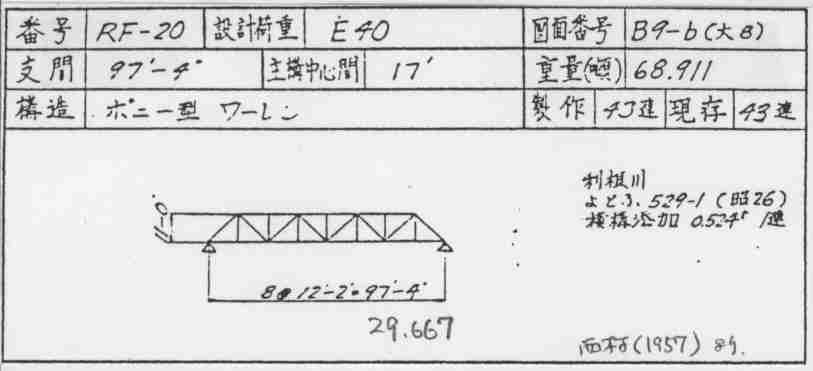 番号 RF-20 設計荷重 E40 図面番号 B9-b(大8)
支間 97'-4" 主構中心間 17' 重量(噸) 68.911
構造 ポニー型 ワーレン 製作 43連 現存 43連
利根川
よとふ.529-1 (昭26)
横構添加 0.524T /連
11'-0
8@12'-2"=97'-4"
29.667
西村(1957) より.